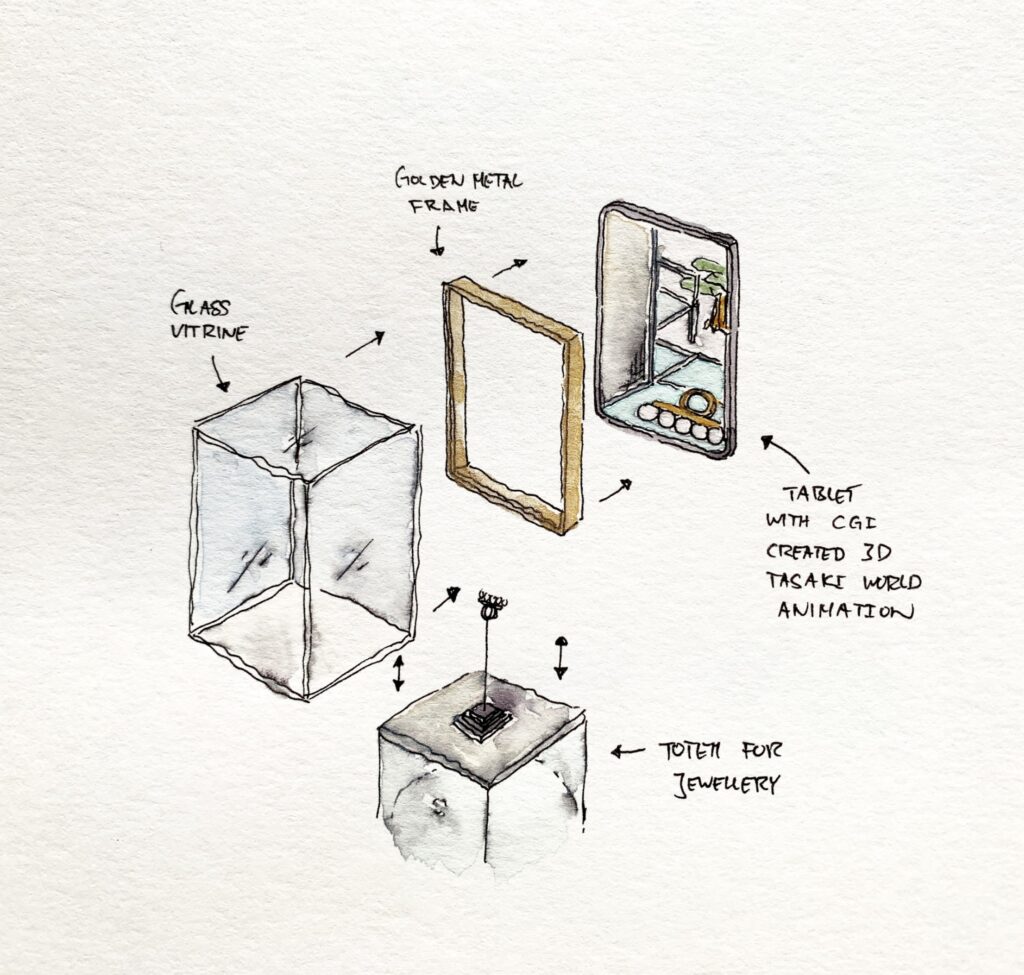 GOLDEN METAL
FRAME
GLASS
VITRINE
TABLET
WITH CGI
CREATED 3D
TASAKI WORLD
ANIMATION
TOTEM FOR
JEWELLERY